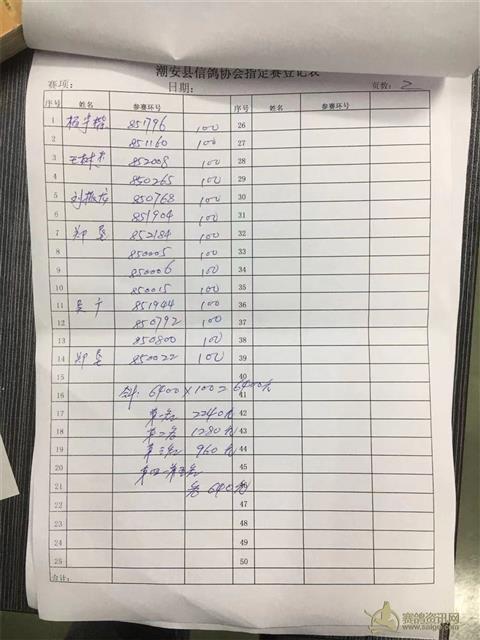 潮安县信鸽协会指定赛登记表
赛项: 日期: 页数: 2
序号 姓名 参赛环号 序号 姓名 参赛环号
1 851796 100 26
2 851160 100 27
3 852008 100 28
4 850265 100 29
5 850768 100 30
6 851904 100 31
7 852184 100 32
8 850005 100 33
9 850006 100 34
10 850015 100 35
11 851944 100 36
12 850792 100 37
13 850800 100 38
14 850022 100 39
15 40
16 6400×100=6400元 41
17 第一名 2240元 42
18 第二名 1280元 43
19 第三名 960元 44
20 第四-第五名 45
21 各 640元
22 47
23 48
24 49
25 50
合计:
赛鸽资讯网
www.saige.com